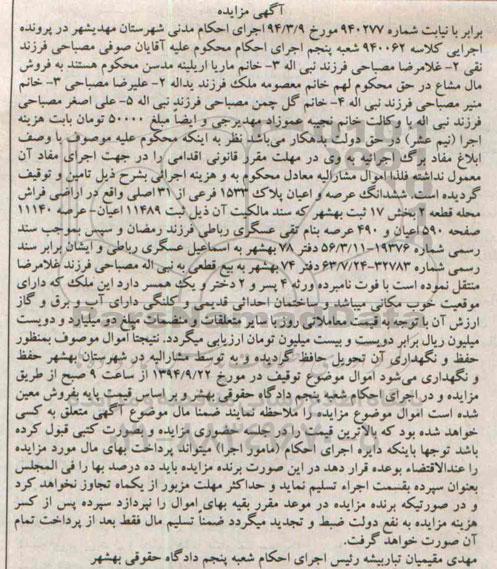 آگهی مزایده
برابر با نیابت شماره ۹۴۰۲۷۷ مورخ ۹۴/۳/۹ اجرای احکام مدنی شهرستان مهدیشهر در پرونده
اجرایی کلاسه ۹۴۰۰۶۲ شعبه پنجم اجرای احکام محکوم علیه آقایان صوفی مصباحی فرزند
نقی ۲- غلامرضا مصباحی فرزند نبی اله ۳- خانم ماریا اریلینه مدسن محکوم هستند به فروش
مال مشاع در حق محکوم لهم خانم معصومه ملک فرزند یداله ۲- علیرضا مصباحی ۳- خانم
منیر مصباحی فرزند نبی اله ۴- خانم گل چمن مصباحی فرزند نبی اله ۵- علی اصغر مصباحی
فرزند نبی اله با وکالت خانم نجیبه عموزاد مهدیرجی و ایضا مبلغ ۵۰۰۰۰ تومان بابت هزینه
اجرا (نیم عشر) در حق دولت بدهکار می‌باشد نظر به اینکه محکوم علیه موصوف با وصف
ابلاغ مفاد برگ اجرائیه به وی در مهلت مقرر قانونی اقدامی را در جهت اجرای مفاد آن
معمول نداشته فلذا اموال مشارالیه معادل محکوم به و هزینه اجرائی بشرح ذیل تامین و توقیف
گردیده است. ششدانگ عرصه و اعیان پلاک ۱۵۳۳ فرعی از ۳۱ اصلی واقع در اراضی فراش
محله قطعه ۲ بخش ۱۷ ثبت بهشهر که سند مالکیت آن ذیل ثبت ۱۱۴۸۹ اعیان - عرصه ۱۱۱۴۰
صفحه ۵۹۰ اعیان و ۴۹۰ عرصه بنام تقی عسگری رباطی فرزند رمضان و سپس بموجب سند
رسمی شماره ۱۹۳۷۶-۵۶/۳/۱۱ دفتر ۷۸ بهشهر به اسماعیل عسگری رباطی و ایشان برابر سند
رسمی شماره ۳۲۷۸۳-۶۳/۷/۲۴ دفتر ۷۴ بهشهر به بیع قطعی به نبی اله مصباحی فرزند غلامرضا
منتقل نموده است با فوت نامبرده ورثه ۴ پسر و ۲ دختر و یک همسر دارد این ملک که دارای
موقعیت خوب مکانی میباشد و ساختمان احداثی قدیمی و کلنگی دارای آب و برق و گاز
ارزش آن با توجه به قیمت معاملاتی روز با سایر متعلقات و منضمات مبلغ دو میلیارد و دویست
میلیون ریال برابر دویست و بیست میلیون تومان ارزیابی میگردد. نتیجتا اموال موصوف بمنظور
حفظ و نگهداری آن تحویل حافظ گردیده و به توسط مشارالیه در شهرستان بهشهر حفظ
و نگهداری می‌شود اموال موضوع توقیف در مورخ ۱۳۹۴/۹/۲۲ از ساعت ۹ صبح از طریق
مزایده و در اجرای احکام شعبه پنجم دادگاه حقوقی بهشهر و بر اساس قیمت پایه بفروش معین
شده است اموال موضوع مزایده را ملاحظه نمایند ضمنا مال موضوع آگهی متعلق به کسی
خواهد شده بود که بالاترین قیمت را در جلسه حضوری مزایده و بصورت کتبی قبول کرده
باشد توجها باینکه دایره اجرای احکام (مامور اجرا) میتواند پرداخت بهای مال مورد مزایده
را عندالاقتضاء بوعده قرار دهد در این صورت برنده مزایده باید ده درصد بها را فی المجلس
بعنوان سپرده بقسمت اجراء تسلیم نماید و حداکثر مهلت مزبور از یکماه تجاوز نخواهد کرد
و در صورتیکه برنده مزایده در موعد مقرر بقیه بهای اموال را نپردازد سپرده پس از کسر
هزینه مزایده به نفع دولت ضبط و تجدید میگردد ضمنا تسلیم مال فقط بعد از پرداخت تمام
آن صورت خواهد گرفت.
مهدی مقیمیان تباربیشه رئیس اجرای احکام شعبه پنجم دادگاه حقوقی بهشهر